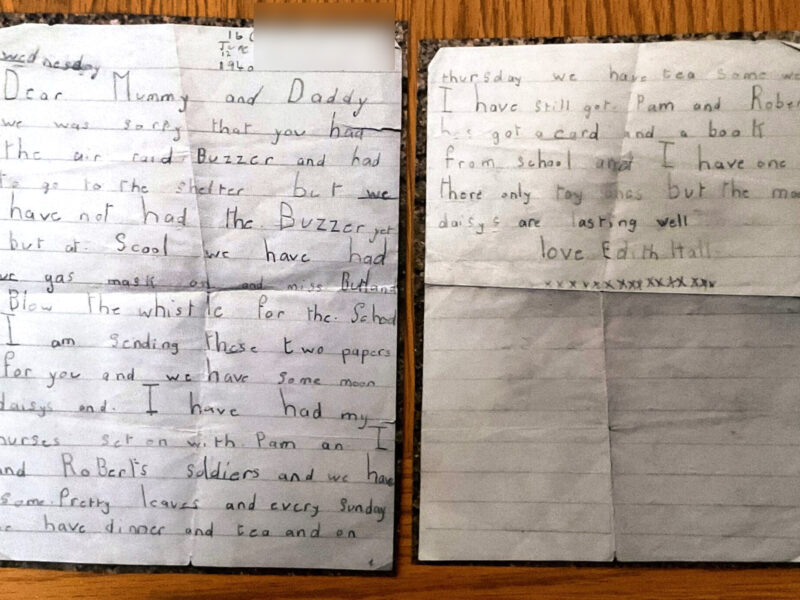 16
June
12
1940
wednesday
Dear Mummy and Daddy
we was sorry that you had
the air raid Buzzer and had
to go to the shelter but we
have not had the Buzzer yet
but at Scool we have had
gas mask on and miss Butland
Blow the whistle for the School
I am sending these two papers
for you and we have some moon
daisys and I have had my
nurses set on with Pam an I
and RoBert's soldiers and we have
some Pretty leaves and every Sunday
have dinner and tea and on
thursday we have tea some
I have still got Pam and Rober
has got a card and a book
from school and I have one
there only toy ones but the moo
daisys are lasting well
love Edith Hall
xxxxxxxxxxxxxx